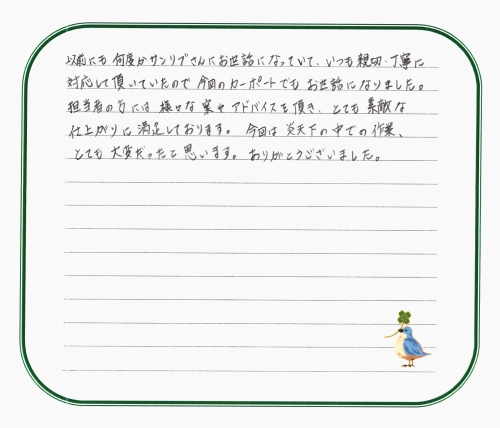 以前にも何度かサンリブさんにお世話になっていて、いつも親切・丁寧に
対応して頂いていたので今回のカーポートでもお世話になりました。
担当者の方には様々な案やアドバイスを頂き、とても素敵な
仕上がりに満足しております。今回は炎天下の中での作業、
とても大変だったと思います。ありがとうございました。